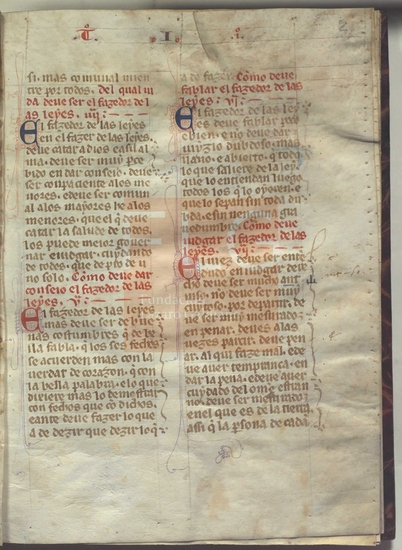 T. I. i. 2
si. mas comunal muen
tre por todos. Del qual ui
da deue ser el fazedor de l
as leyes. iiij.
El fazedor de las leyes
en el fazer de las leyes
deue catar a dios easu al
ma. deue ser muy pro
bido en dar conseio. deue
ser conpaciente alos me
nores. edeue ser comun
al alos mayores he alos
menores. que el q deue
catar la salude de todos.
los puede meior gouer
nar eiudgar. cuydando
de todos. que de pro de u
no solo. Como deue dar
conseio el fazedor de las
leyes. v.
El fazedor de las leyes
mas deue ser de bue
nas costumbres q de be
lla fabla. q los sos fechos
se acuerden mas con la
uerdat de coraçon. q con
la bella palabra. elo que
dixiere mas lo demostrar
con fechos que co dichos.
eante deue fazer lo que
a de dezir que dezir lo q
a de fazer. Como deue
fablar el fazedor de las
leyes. vj.
El fazedor de las ley
es deue fablar poco
ebien. e no deue dar
iuyzio dubdoso. mas
llano. e abierto. q todo
lo que saliere de la ley
que lo entiendan luego
todos los q lo oyeren. e
que lo sepan sin toda du
bda. esin nenguna gra
uedumbre. Como deue
iudgar el fazedor de las
leyes. vij.
El iuez deue ser ente
dudo en iudgar dere
cho deue ser mucho ant
uiso. no deue ser muy
cuytoso. por departir. de
ue ser muy mesurado
en penar. deues alas
uezes partir. deue pen
ar. al qui faze mal. ede
ue auer temprança. en
dar la pena. edeue auer
cuydado del ome estran
no. deue ser mesurado
en el que es de la tierra.
assi q la persona de cada